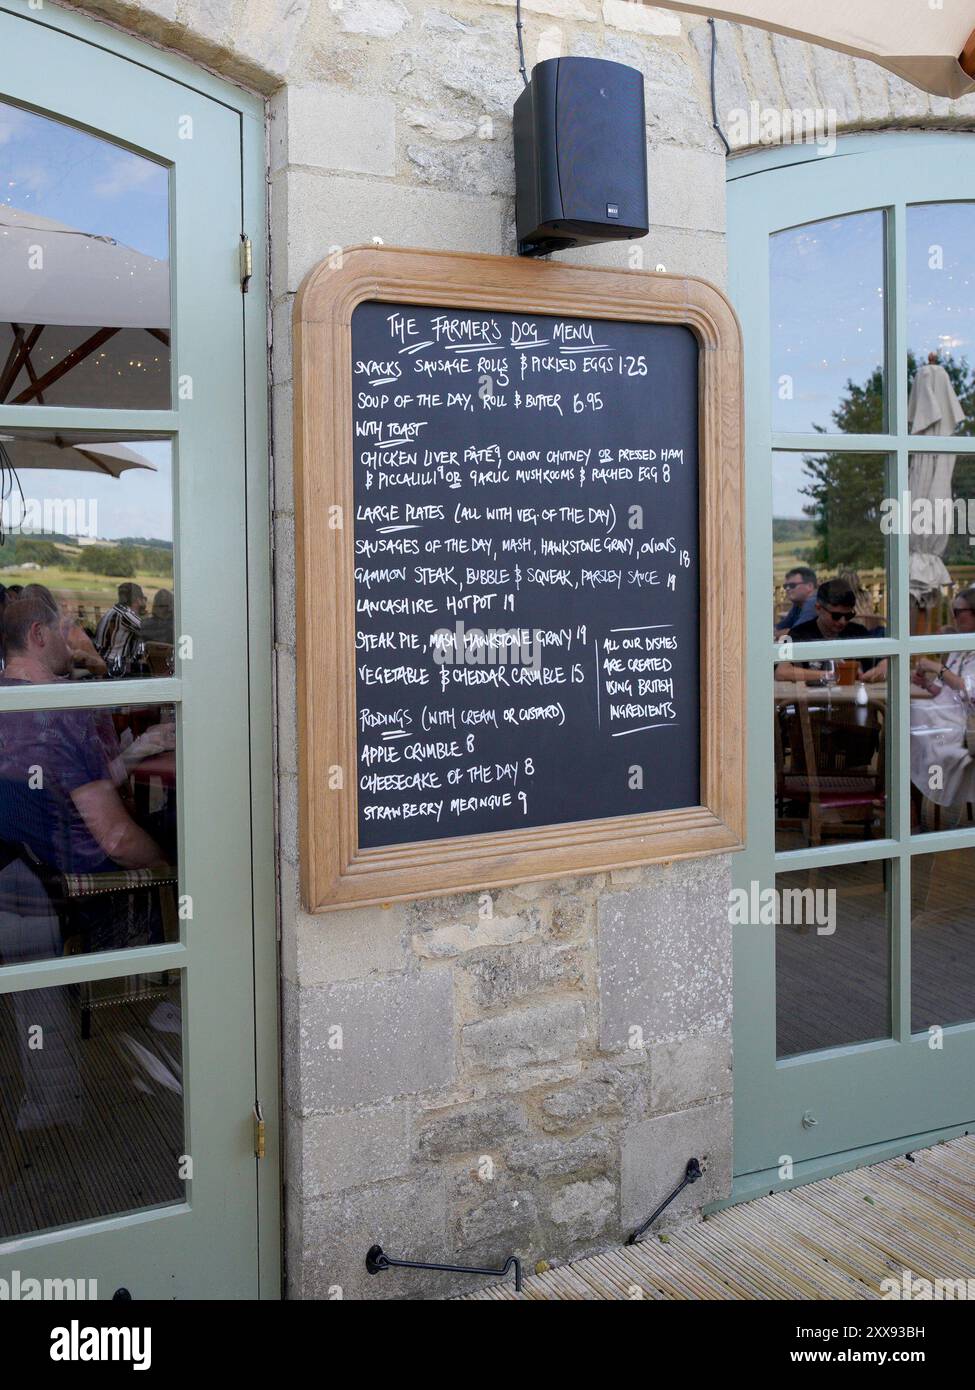 THE FARMER'S DOG MENU
SNACKS SAUSAGE ROLLS 5 & PICKLED EGGS 1.25
SOUP OF THE DAY, ROLL & BUTTER 6.95
WITH TOAST
CHICKEN LIVER PÂTÉ 9, ONION CHUTNEY OR PRESSED HAM
& PICCALILLI 9 OR GARLIC MUSHROOMS & POACHED EGG 8
LARGE PLATES (ALL WITH VEG. OF THE DAY)
SAUSAGES OF THE DAY, MASH, HAWKSTONE GRAVY, ONIONS 18
GAMMON STEAK, BUBBLE & SQUEAK, PARSLEY SAUCE 19
LANCASHIRE HOTPOT 19
STEAK PIE, MASH HAWKSTONE GRAVY 19
VEGETABLE & CHEDDAR CRUMBLE 15
ALL OUR DISHES
ARE CREATED
USING BRITISH
INGREDIENTS
PUDDINGS (WITH CREAM OR CUSTARD)
APPLE CRUMBLE 8
CHEESECAKE OF THE DAY 8
STRAWBERRY MERINGUE 9
alamy
Image ID: 2XX93BH
www.alamy.com